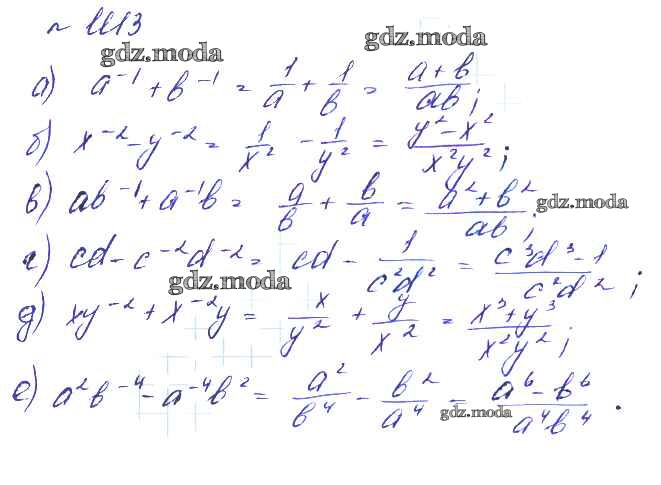 № 1113
gdz.moda
gdz.moda
а) a⁻¹ + b⁻¹ = 1/a + 1/b = (a + b)/ab;
б) x⁻² - y⁻² = 1/x² - 1/y² = (y² - x²)/x²y²;
в) ab⁻¹ + a⁻¹b = a/b + b/a = (a² + b²)/ab;
gdz.moda
г) cd - c⁻²d⁻² = cd - 1/c²d² = (c³d³ - 1)/c²d²;
gdz.moda
д) xy⁻² + x⁻²y = x/y² + y/x² = (x³ + y³)/x²y²;
е) a²b⁻⁴ - a⁻⁴b² = a²/b⁴ - b²/a⁴ = (a⁶ - b⁶)/a⁴b⁴.
gdz.moda